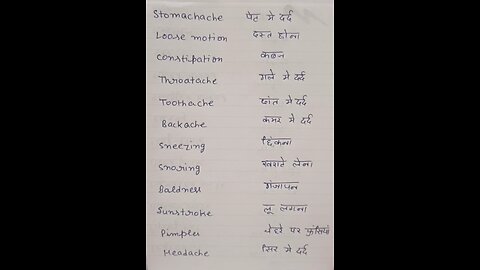 Stomachache पेट मे दर्द
Loose motion दस्त होना
Constipation कब्ज
Throatache गले मे दर्द
Toothache दांत मे दर्द
Backache कमर मे दर्द
Sneezing छिंकना
Snoring खराटे लेना
Baldness गंजापन
Sunstroke लू लगना
Pimples चेहरे पर फुंसियां
Headache सिर मे दर्द